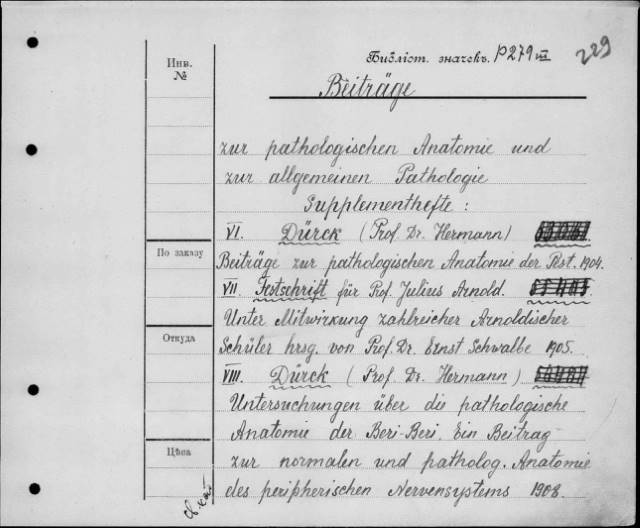 Инв. №
Библіот. значекъ. P279 III
229
Beiträge
zur pathologischen Anatomie und
zur allgemeinen Pathologie
Supplementhefte :
VI. Dürck ( Prof. Dr. Hermann)
По заказу
Beiträge zur pathologischen Anatomie der Pest. 1904.
VII. Festschrift für Prof. Julius Arnold.
Unter Mitwirkung zahlreicher Arnoldischer
Откуда
Schüler hrsg. von Prof. Dr. Ernst Schwalbe 1905.
VIII. Dürck ( Prof. Dr. Hermann)
Untersuchungen über die pathologische
Anatomie der Beri-Beri. Ein Beitrag
Цѣна
zur normalen und patholog. Anatomie
des peripherischen Nervensystems 1908.